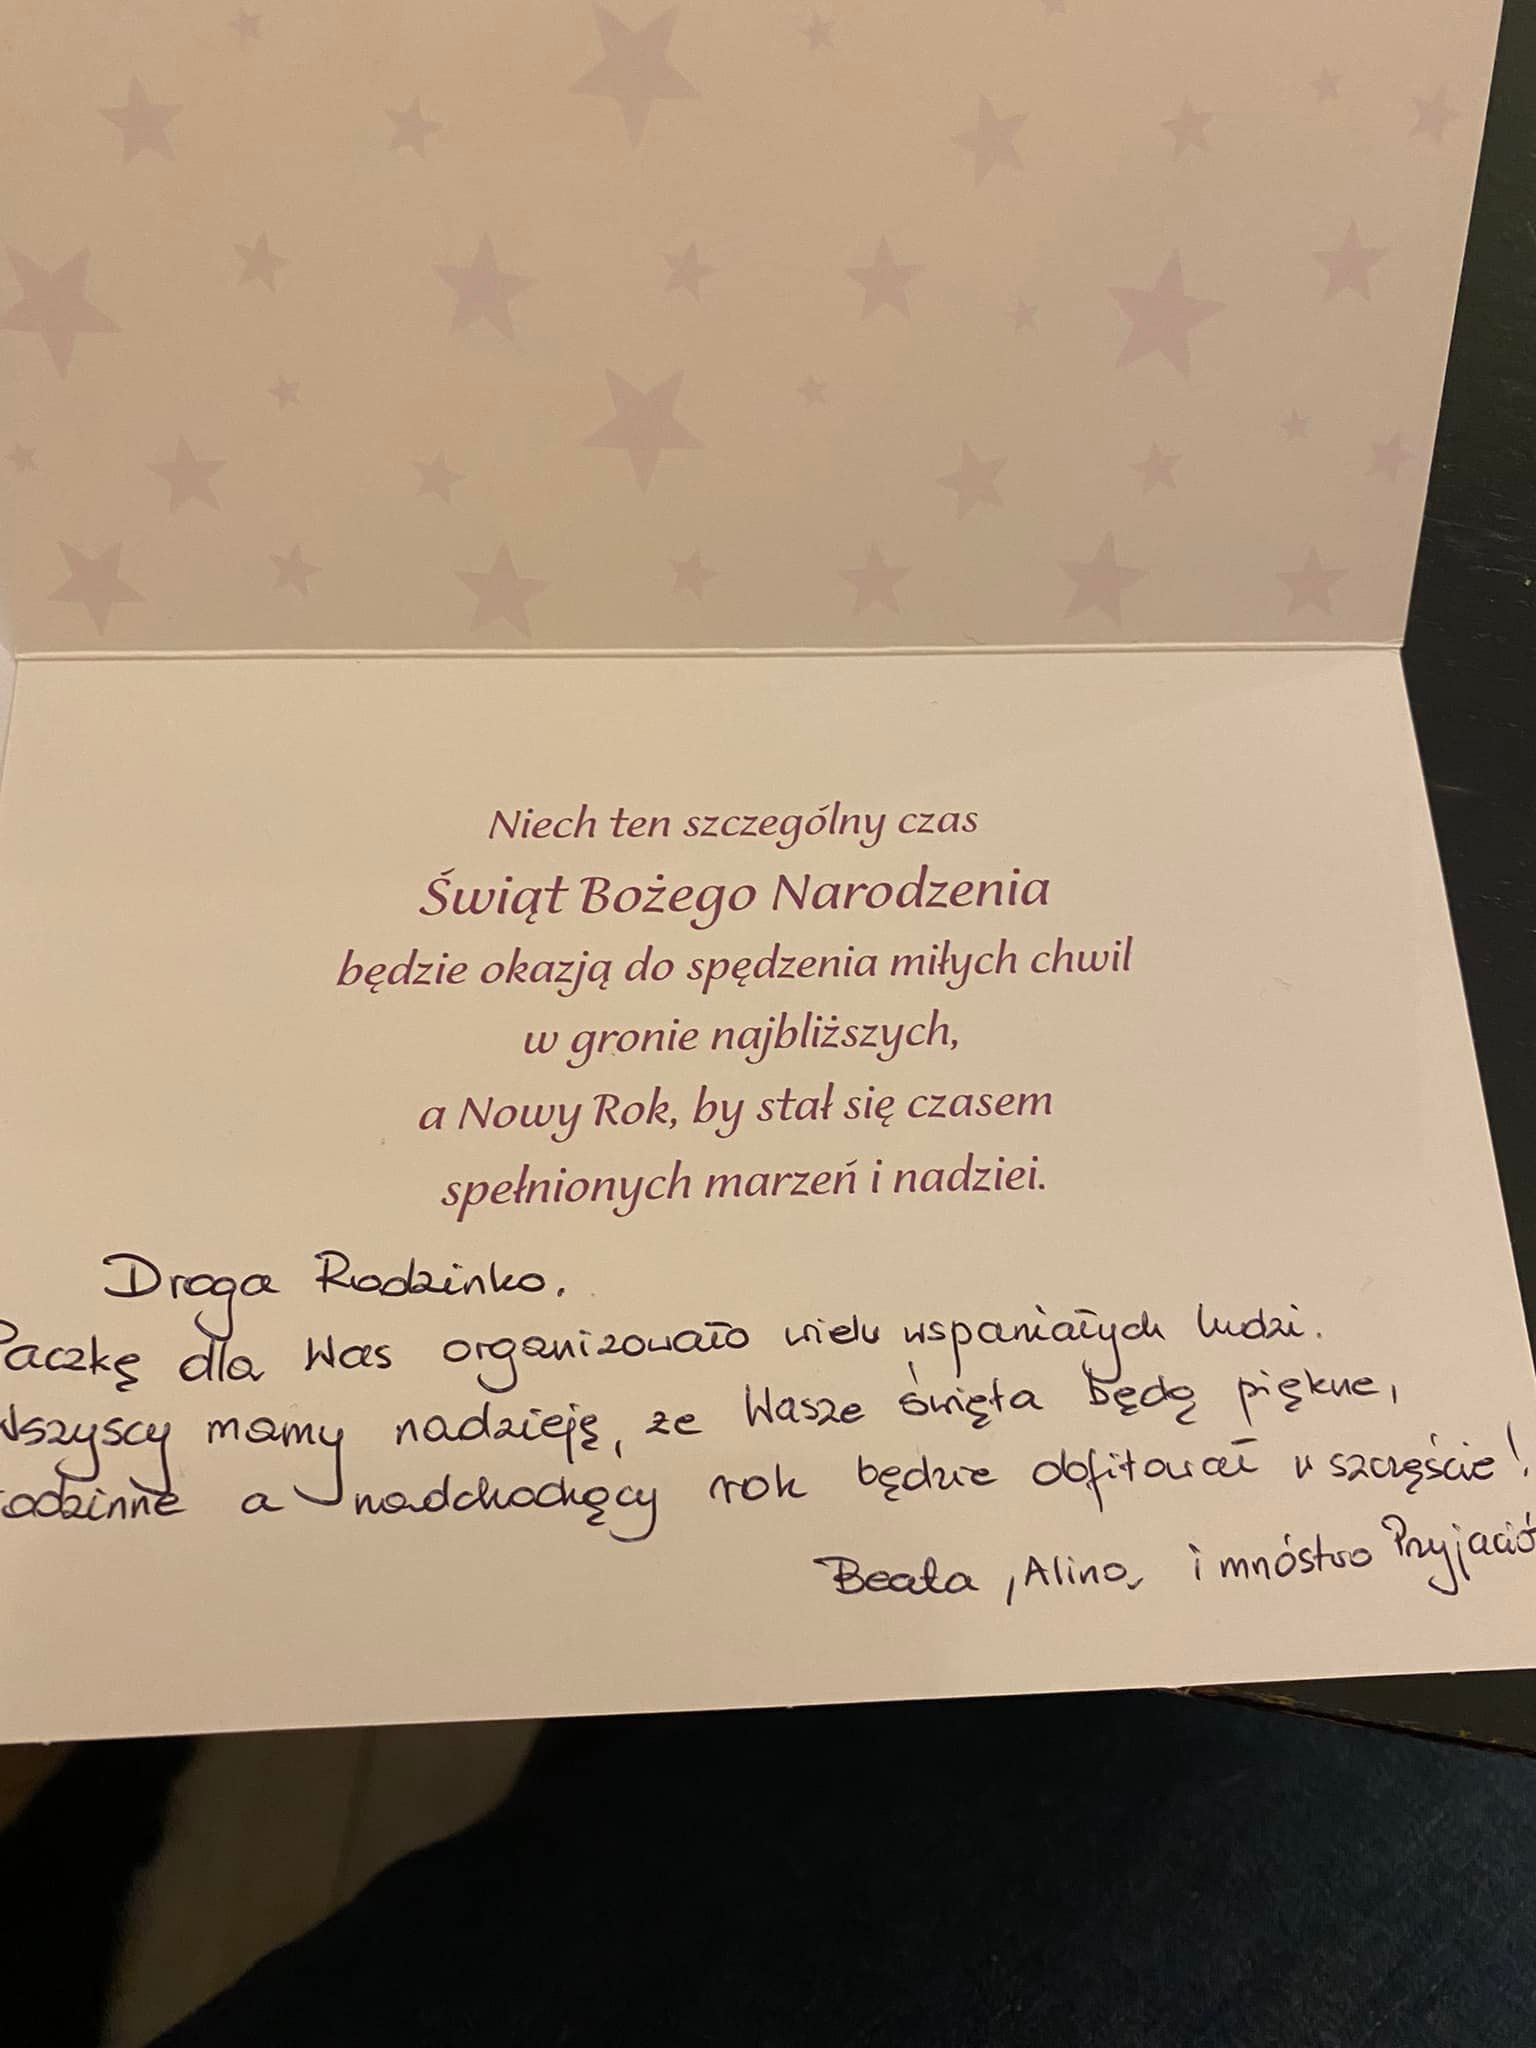 Niech ten szczególny czas
Świąt Bożego Narodzenia
będzie okazją do spędzenia miłych chwil
w gronie najbliższych,
a Nowy Rok, by stał się czasem
spełnionych marzeń i nadziei.
Droga Rodzinko.
Paczkę dla Was organizowało wielu wspaniałych ludzi.
Wszyscy mamy nadzieję, że Wasze święta będą piękne,
rodzinne a nadchodzący rok będzie obfitował w szczęście!
Beata, Alina i mnóstwo Przyjació